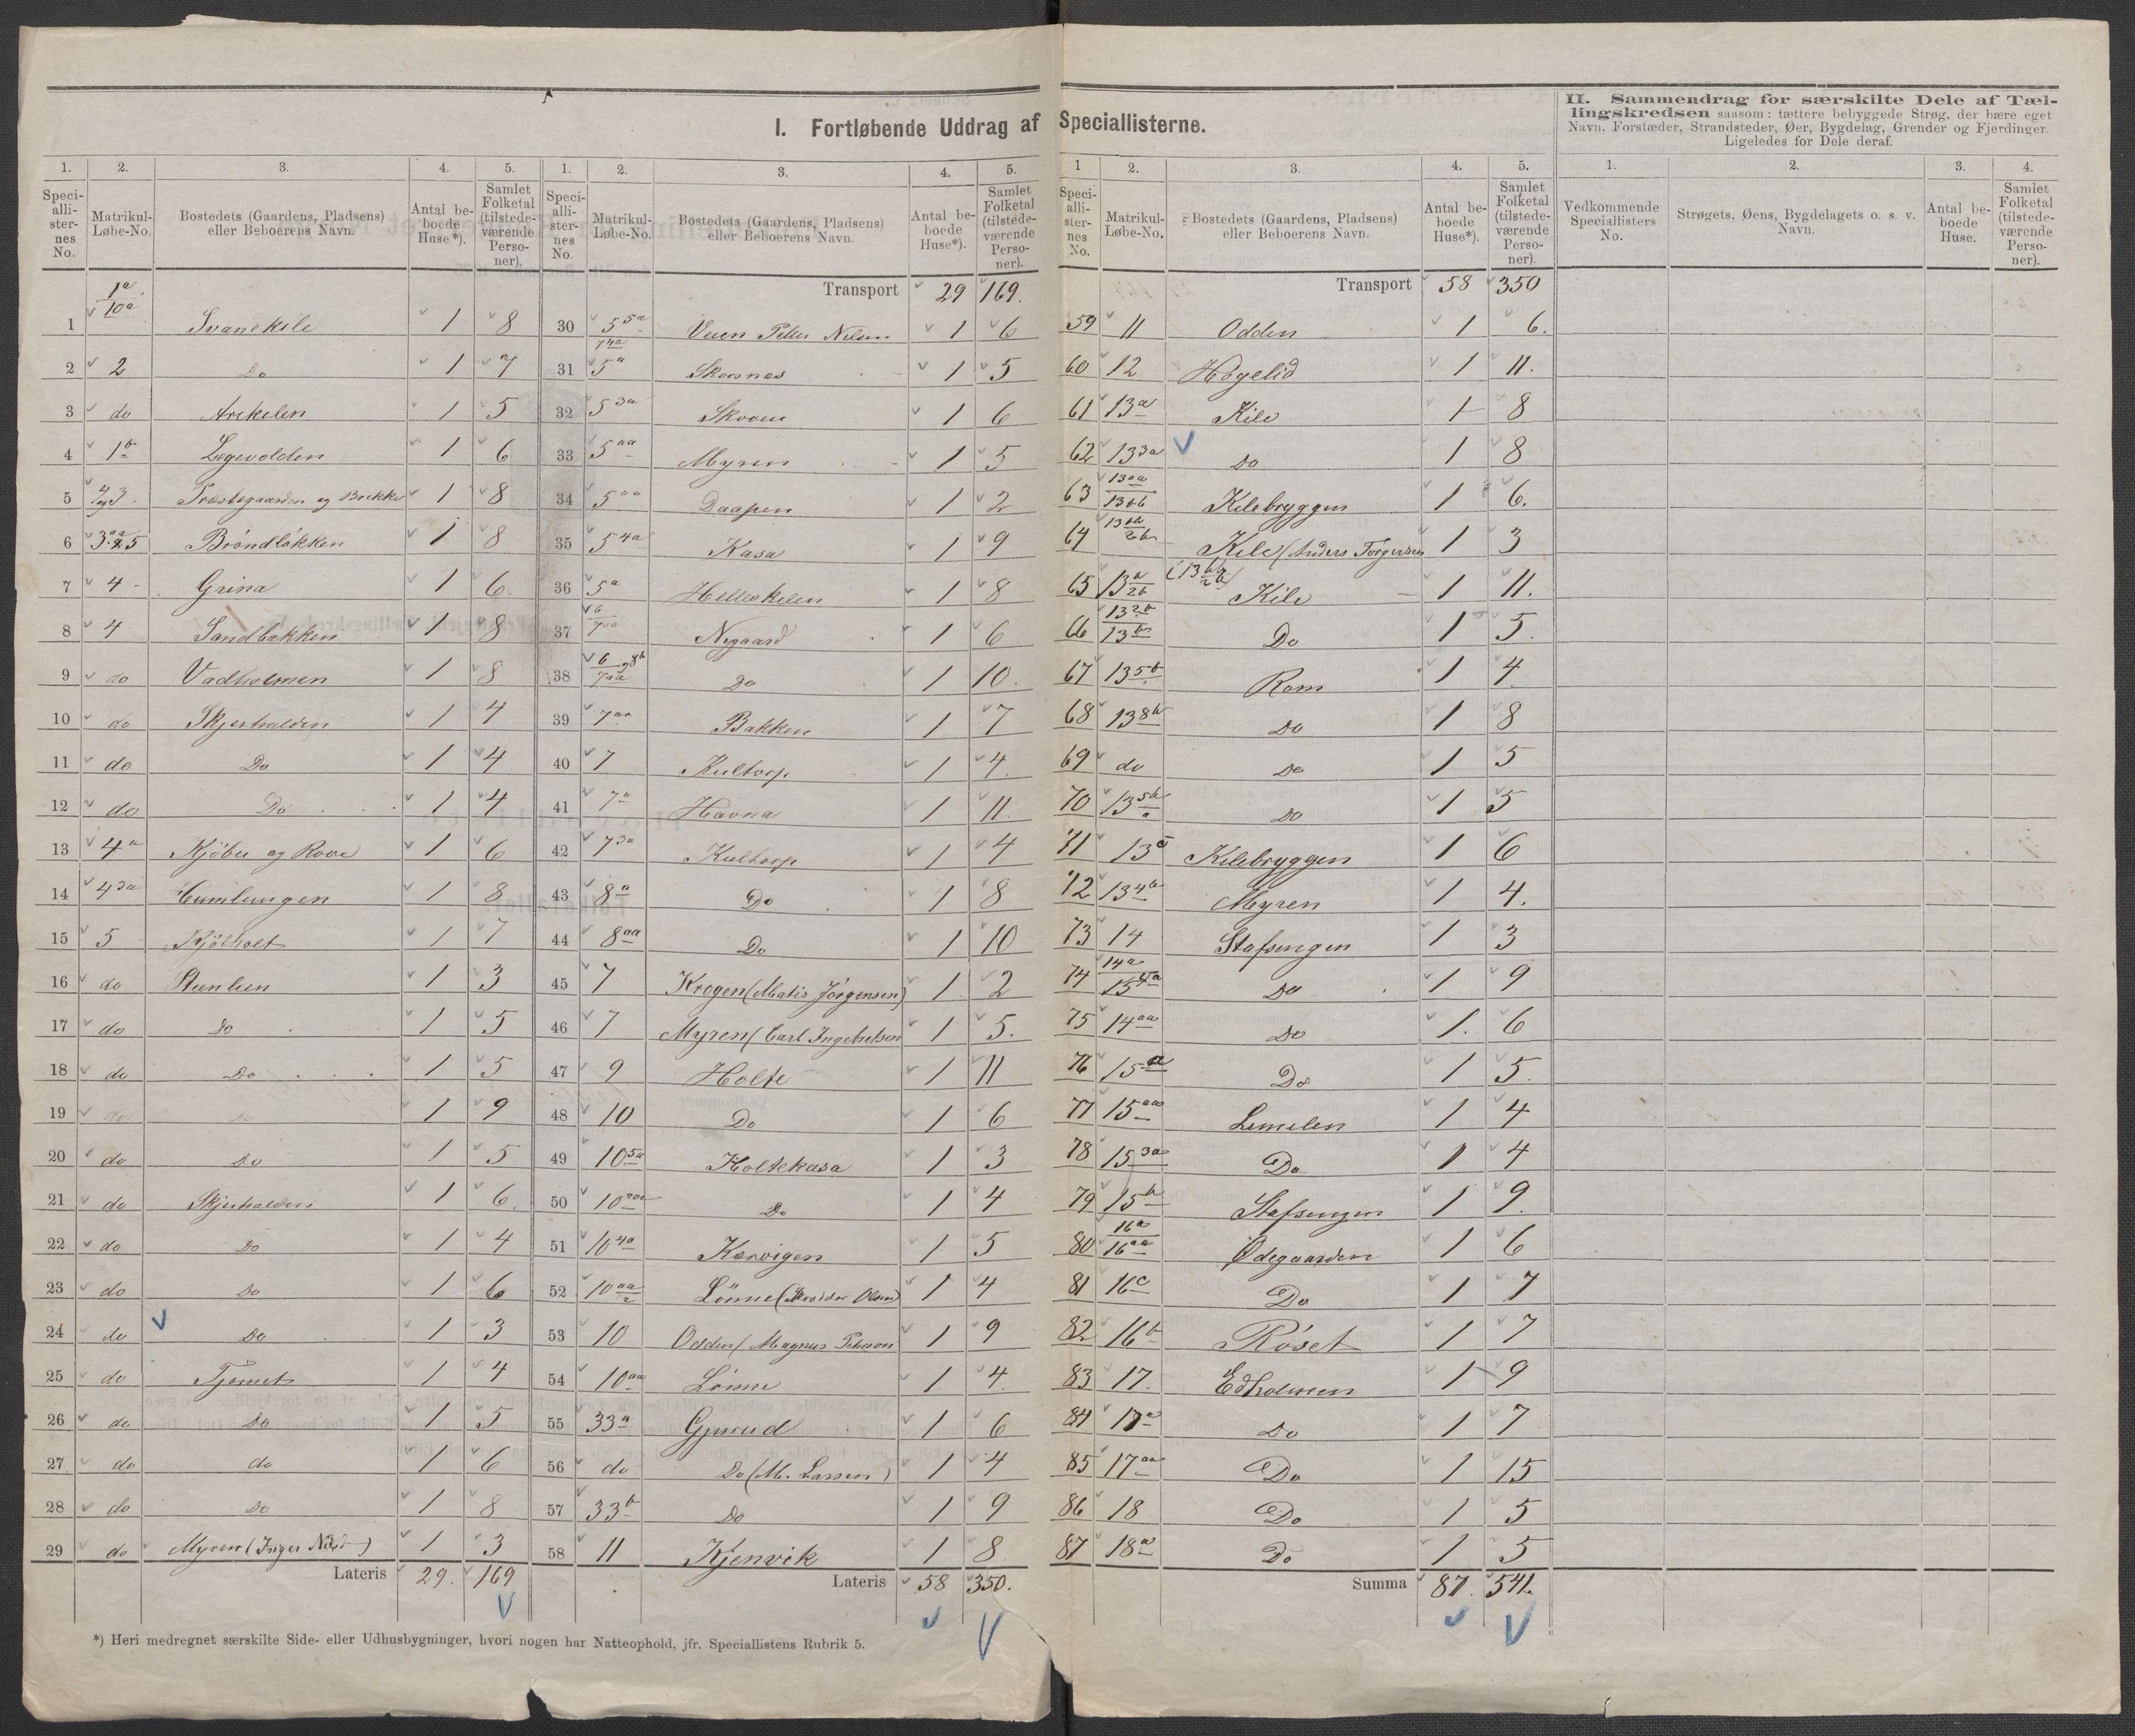 I. Fortløbende Uddrag af Speciallisterne.
II. Sammendrag for særskilte Dele af Tæl-
lingskredsen saasom: tættere bebyggede Strøg, der bære eget
Navn, Forstæder, Strandsteder, Øer, Bygdelag, Grender og Fjerdinger.
Ligeledes for Dele deraf.
1. 2. 3. 4. 5.
Speciallisternes No. Matrikul-Løbe-No. Bostedets (Gaardens, Pladsens) eller Beboerens Navn. Antal beboede Huse*). Samlet Folketal (tilstedeværende Personer).
1 1a/10a Svanekile 1 8
2 2 Do 1 7
3 do Arekilen 1 5
4 1b Legevolden 1 6
5 4 og 3 Præstegaarden og Brekke 1 8
6 3aa 25 Bröndlökken 1 8
7 4 Grina 1 6
8 4 Sandbakken 1 8
9 do Vadholmen 1 8
10 do Skjerhalden 1 4
11 do Do 1 4
12 do Do 1 4
13 4a Kjöber og Rove 1 6
14 43a Humlungen 1 8
15 5 Kjölholt 1 7
16 do Stenlien 1 3
17 do Do 1 5
18 do Do 1 5
19 do Do 1 9
20 do Do 1 5
21 do Skjerhalden 1 6
22 do Do 1 4
23 do Do 1 6
24 do Do 1 3
25 do Tjernet 1 4
26 do Do 1 5
27 do do 1 6
28 do Do 1 8
29 do Myren (Inger 1 3
Lateris 29. 169
1. 2. 3. 4. 5.
Speciallisternes No. Matrikul-Løbe-No. Bostedets (Gaardens, Pladsens) eller Beboerens Navn. Antal beboede Huse*). Samlet Folketal (tilstedeværende Personer).
Transport 29 169.
30 55a Veen Peder Nilsen 1 6
31 5a Skorsnes 1 5
32 53a Skoven 1 6
33 5aa Myren 1 5
34 5aa Daapen 1 2
35 54a Kasa 1 9
36 5a Helleskilen 1 8
37 6/7aa Nygaard 1 6
38 6/7aa 8b Do 1 10.
39 7aa Bakken 1 7
40 7 Kultorp 1 4
41 7a Havna 1 11
42 73a Kultorp 1 4
43 8a Do 1 8
44 8aa Do 1 10
45 7 Krogen (Matis Jörgensen) 1 2
46 7 Myren (Carl Ingebretsen 1 5.
47 9 Holte 1 11
48 10 Do 1 6
49 105a Holtekasa 1 3
50 10 Do 1 4
51 104a Kærvigen 1 5
52 10aa/2 Lönne ( Olsen) 1 4
53 10 Odden (Magnus Peterson 1 9
54 10aa Lönne 1 4.
55 33a Gjurud 1 6
56 do Do (M. Larsen) 1 4
57 33b Do 1 9
58 11 Kjenvik 1 8
Lateris 58 350.
1 2. 3. 4. 5.
Speciallisternes No. Matrikul-Løbe-No. Bostedets (Gaardens, Pladsens) eller Beboerens Navn. Antal beboede Huse*). Samlet Folketal (tilstedeværende Personer).
Transport 58 350
59 11 Odden 1 6.
60 12 Högelid 1 11.
61 13a Kile 1 8
62 133a Do 1 8
63 13aa/13bb Kilebryggen 1 6.
64 Kile (Anders Torgersen 1 3
65 13a/2b Kile 1 11.
66 132b/13b Do 1 5.
67 135b Rom 1 4
68 138b Do 1 8
69 do Do 1 5
70 135b/a Do 1 5
71 13 Kilebryggen 1 6
72 134b Myren 1 4.
73 14 Stafsengen 1 3
74 14a/154a Do 1 9
75 14aa Do 1. 6
76 15a Do 1 5.
77 15aa Lemelen 1 4
78 153a Do 1 4
79 15b Stafsengen 1 9.
80 16a/16aa Ödegaarden 1 6
81 16c Do 1 7
82 16b Röset 1 7
83 17. Edholmen 1 9
84 17a Do 1 7
85 17aa Do 1 15
86 18 Do 1 5
87 18a Do 1 5
Summa 87. 541.
1. 2. 3. 4.
Vedkommende Speciallisters No. Strøgets, Øens, Bygdelagets o. s. v. Navn. Antal beboede Huse. Samlet Folketal (tilstedeværende Personer).
*) Heri medregnet særskilte Side- eller Udhusbygninger, hvori nogen har Natteophold, jfr. Speciallistens Rubrik 5.